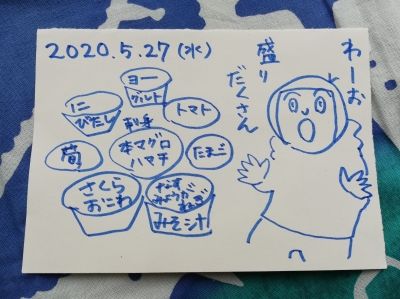 2020.5.27(水)
わーお
盛り
だくさん
ヨー
グルト
に
びたし
トマト
刺身
本マグロ
ハマチ
筍
たまご
さくら
おこわ
なす
みょうが
ねぎ
みそ汁